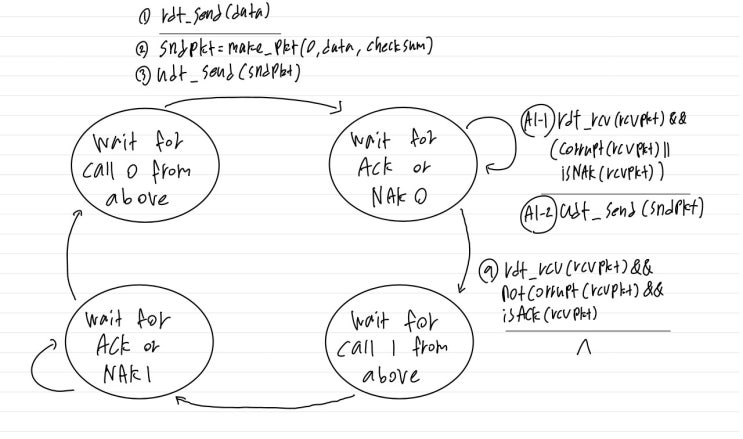 ① rdt_send(data)
② sndpkt=make_pkt(0,data,checksum)
③ udt_send(sndpkt)
Wait for
call 0 from
above
Wait for
Ack or
NAK 0
A1-1 rdt_rcv(rcvpkt)&&
(corrupt(rcvpkt)||
isNAK(rcvpkt))
A1-2 udt_send(sndpkt)
⑨ rdt_rcv(rcvpkt)&&
notcorrupt(rcvpkt)&&
isAck(rcvpkt)
Λ
Wait for
ACK or
NAK 1
Wait for
call 1 from
above